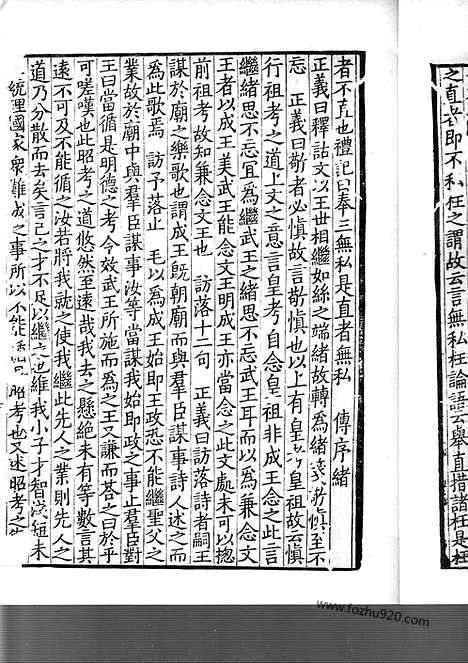 之直者即不私枉之謂故云言無私枉論語云舉直措諸枉是枉
者不直也禮記曰奉三無私是直者無私 傳序緒
正義曰釋詁文以王世相繼如絲之端緒故轉為緒 慎至不
忘 正義曰敬者必慎故言敬慎也以上有皇考皇祖故云慎
行祖考之道上文之意言皇考自念皇祖非成王念之此言
繼緒思不忘宜為繼武王之緒思不忘武王耳而以為兼念文
王者以成王美武王能念文王明成王亦當念之此文處未可以揔
前祖考故知兼念文王也 訪落十二句 正義曰訪落詩者嗣王
謀於廟之樂歌也謂成王既朝廟而與羣臣謀事詩人述之而
為此歌焉 訪予落止 毛以為成王始即王政恐不能繼聖父之
業故於廟中與羣臣謀事汝等當謀我始即政之事止羣臣對
王曰當循是明德之考令效武王所施而為之王又謙而荅之曰於乎
可嗟嘆也此昭考之道悠然至遠哉我去之懸絕未有等數言其
遠不可及不能循之汝若將我就之使我繼此先人之業則先人之
道乃分散而去矣言己之才不足以繼之也維我小子才智 短未
統理國家衆難成之事所以不能 昭考也又述昭考之
www.fozhu920.com